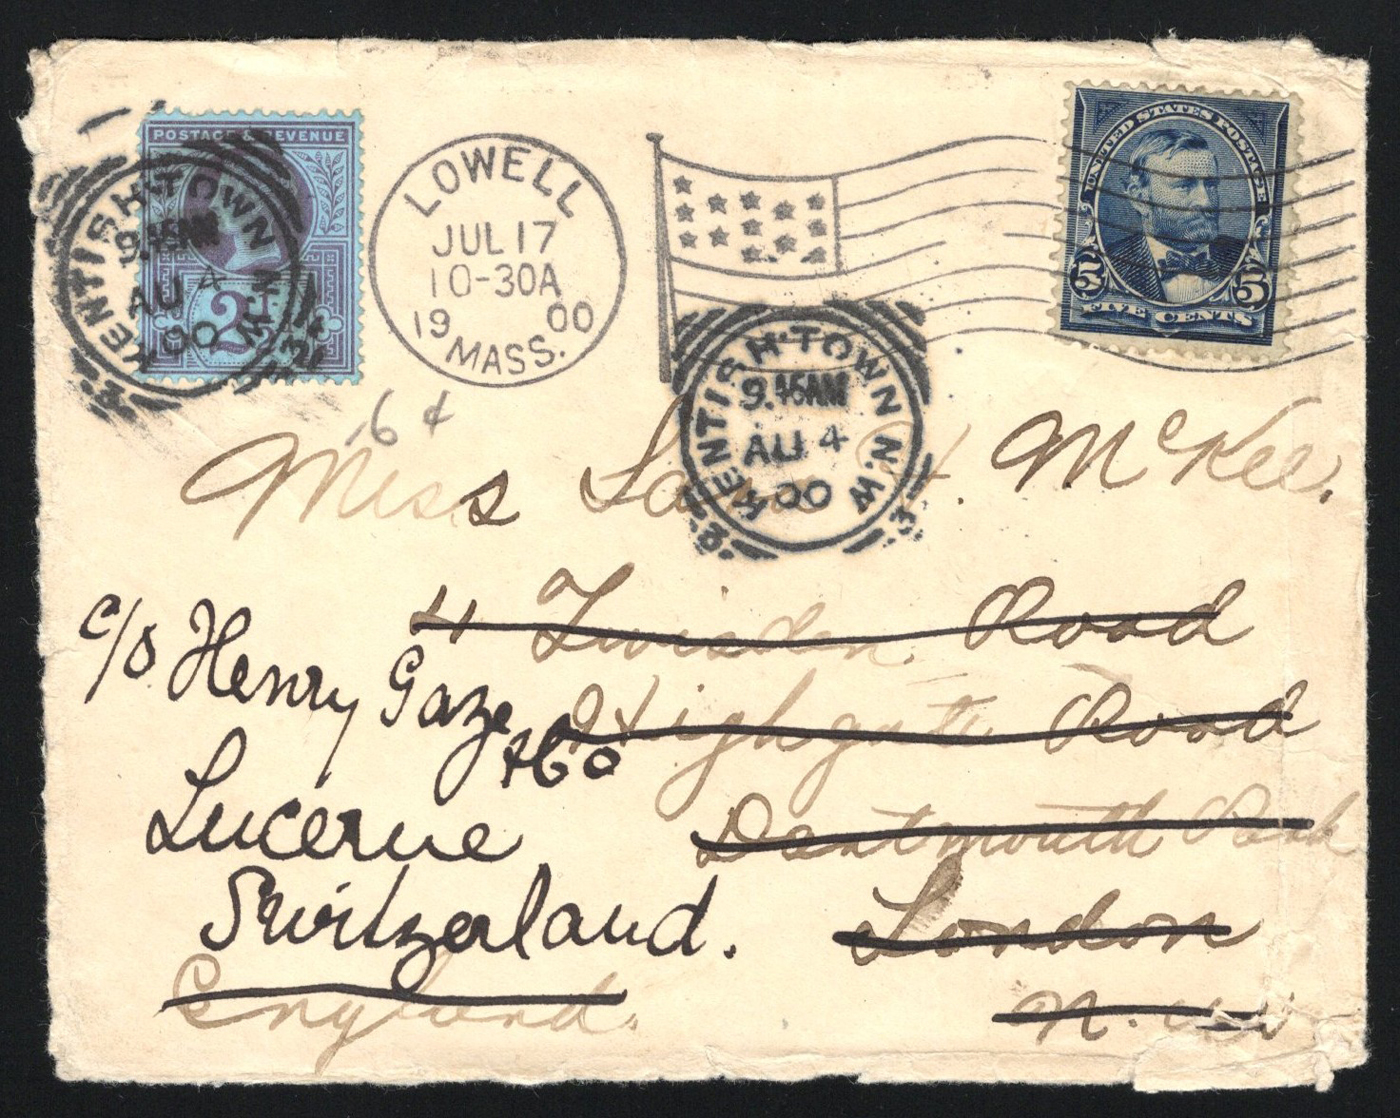 POSTAGE & REVENUE
2½
KENTISH-TOWN N.W
9.45AM
AU 4
00
LOWELL
JUL 17
10-30A
1900
MASS.
UNITED STATES POSTAGE
5 5
FIVE CENTS
KENTISH-TOWN N.W
9.45AM
AU 4
00
3
-6 ¢
Miss H. McKee.
11 Twisden Road
Highgate Road
Dartmouth Park
London
N.W.
England.
c/o Henry Gaze
& Co
Lucerne
Switzerland.